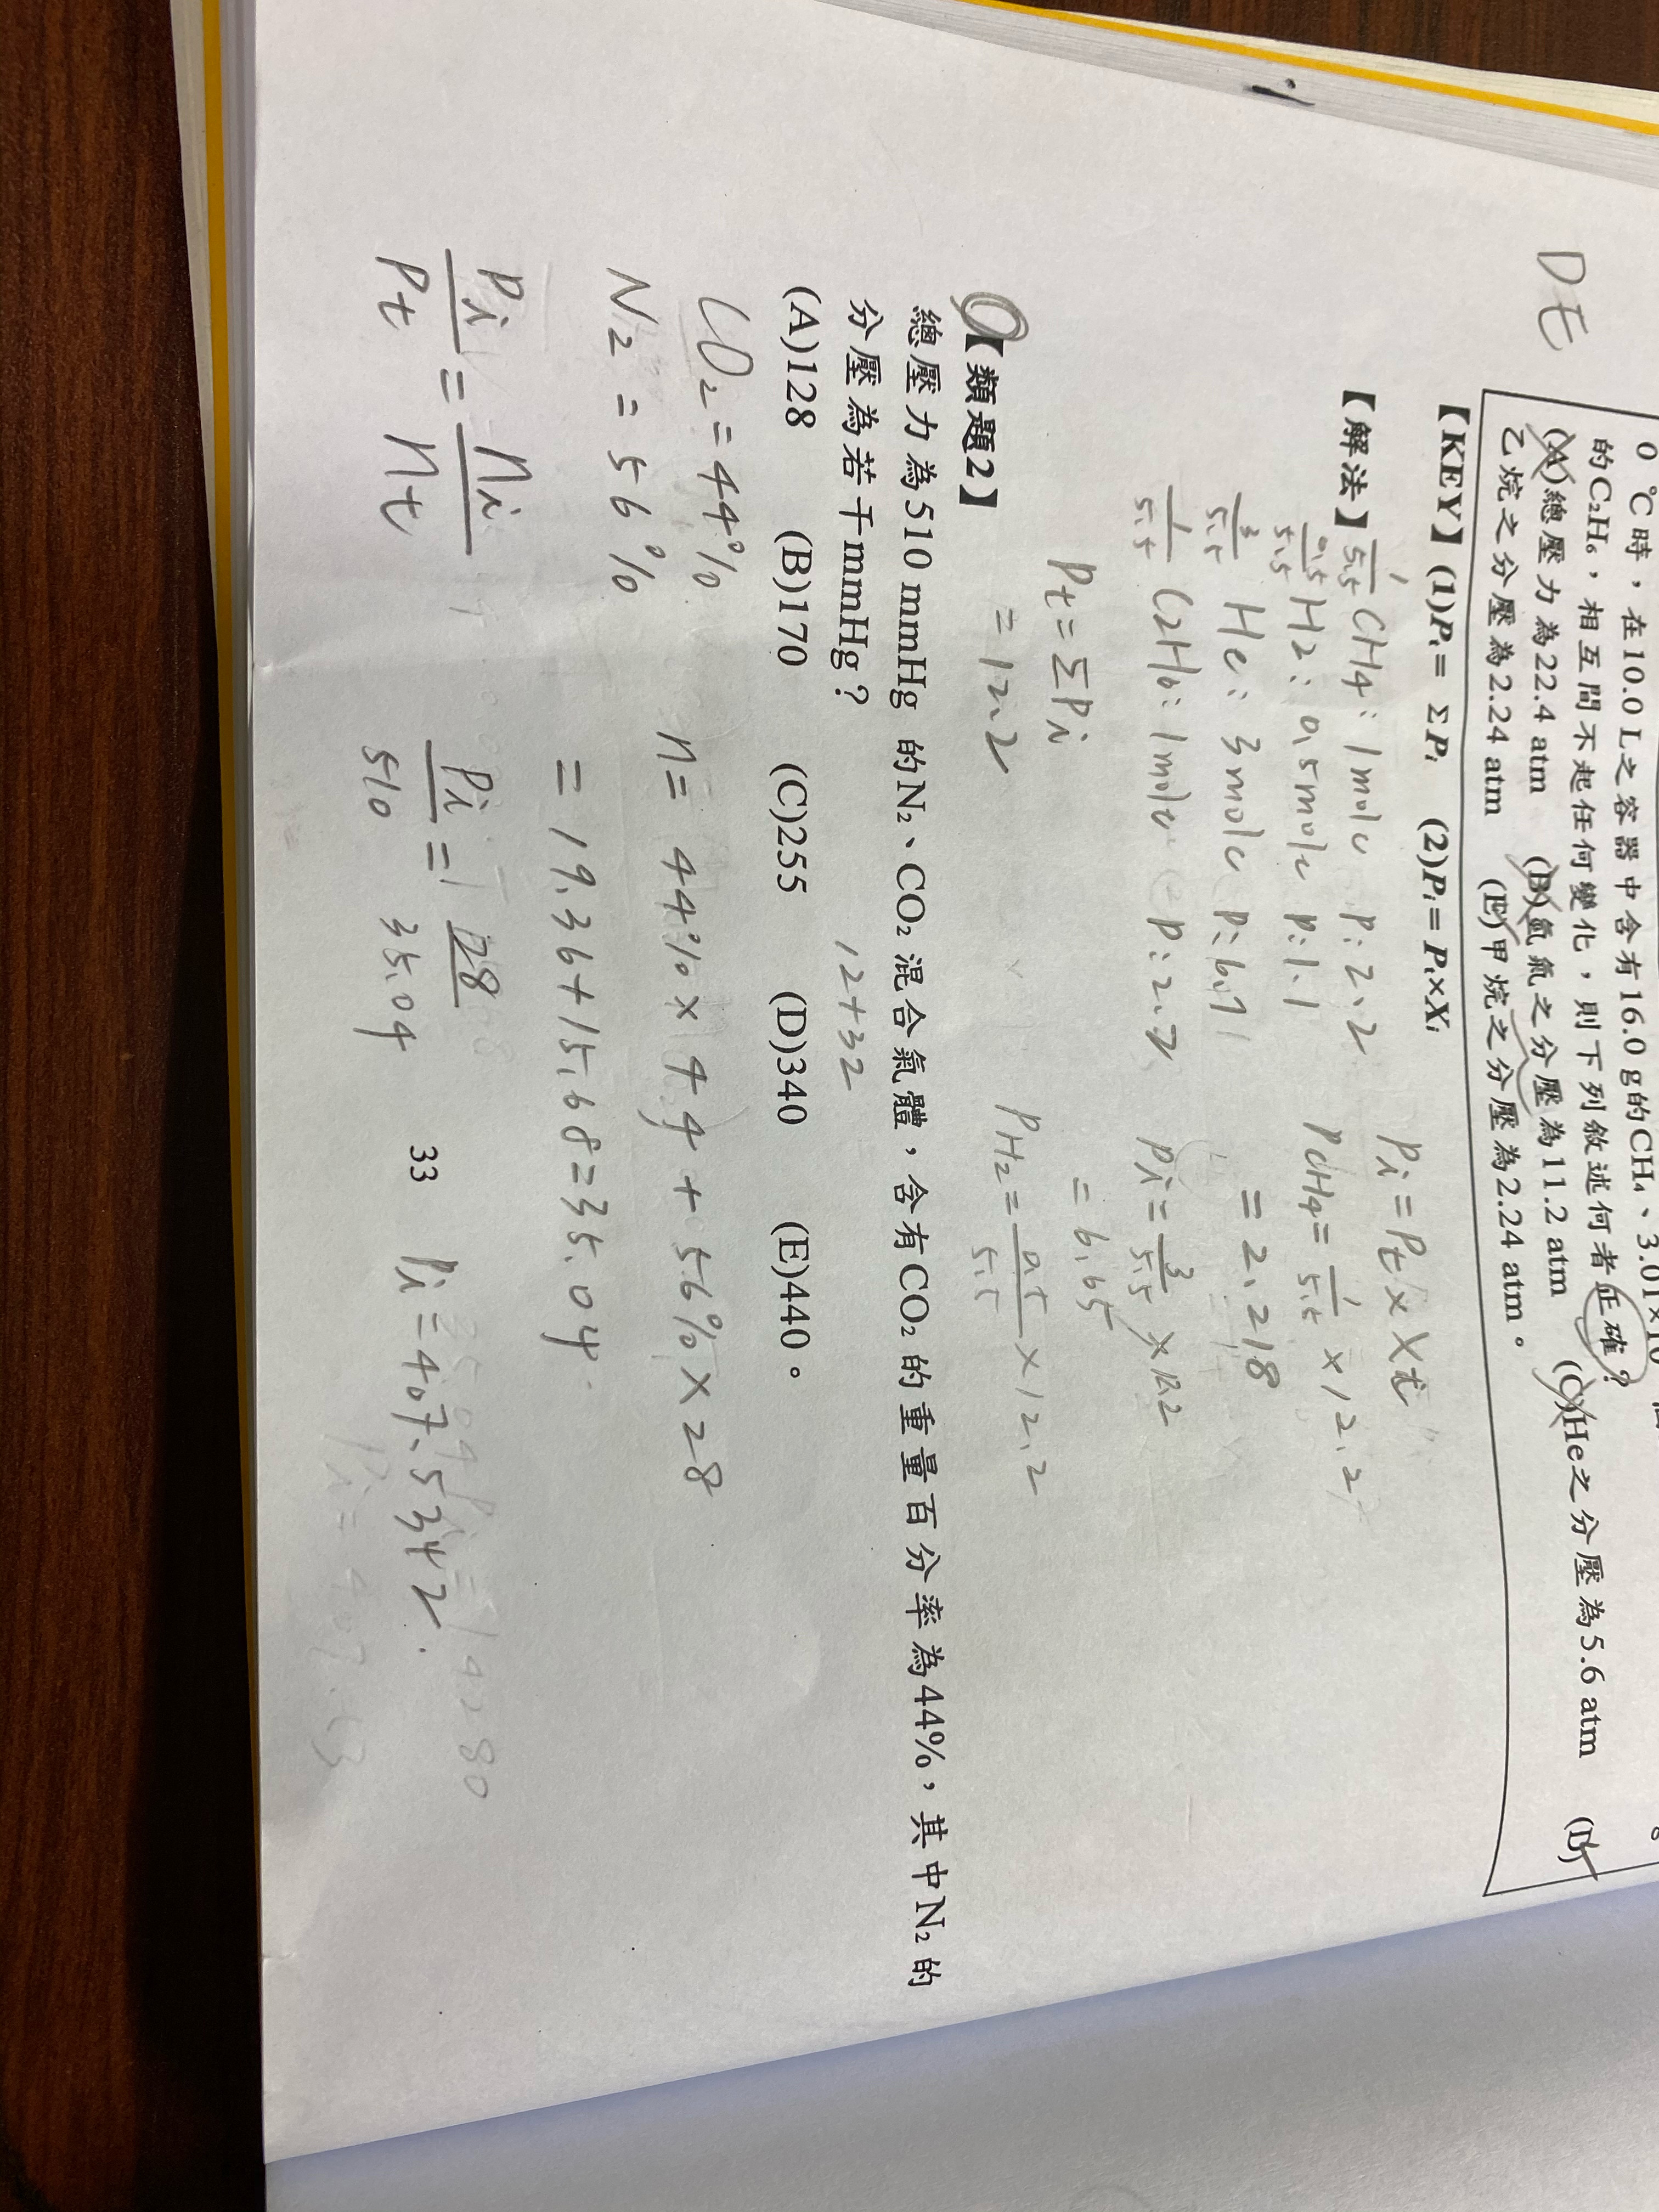 DE
0 ℃時，在10.0 L之容器中含有16.0 g的CH₄、3.01×10
的C₂H₆，相互間不起任何變化，則下列敘述何者正確？
(A)總壓力為22.4 atm (B)氫氣之分壓為11.2 atm (C)He之分壓為5.6 atm (D)
乙烷之分壓為2.24 atm (E)甲烷之分壓為2.24 atm。
【KEY】(1)Pₜ= ΣPᵢ (2)Pᵢ= Pₜ×Xᵢ
【解法】
1/5.5 CH4: 1mole P: 2.2
0.5/5.5 H2: 0.5mole P: 1.1
3/5.5 He: 3mole P: 6.7
1/5.5 C2H6: 1mole P: 2.2
Pt = ΣPi
= 12.2
Pi = Pt × X
PCH4 = 1/5.5 × 12.2
= 2.218
Pi = 3/5.5 × 12.2
= 6.65
PH2 = 0.5/5.5 × 12.2
【類題2】
總壓力為510 mmHg 的N₂、CO₂混合氣體，含有CO₂的重量百分率為44%，其中N₂的
分壓為若干mmHg？
12+32
(A)128 (B)170 (C)255 (D)340 (E)440。
CO₂ = 44%
N₂ = 56%
n = 44% × 44 + 56% × 28
= 19.36 + 15.68 = 35.04
Pi/Pt = ni/nt
Pi/510 = 28/35.04
Pi = 407.5342
33